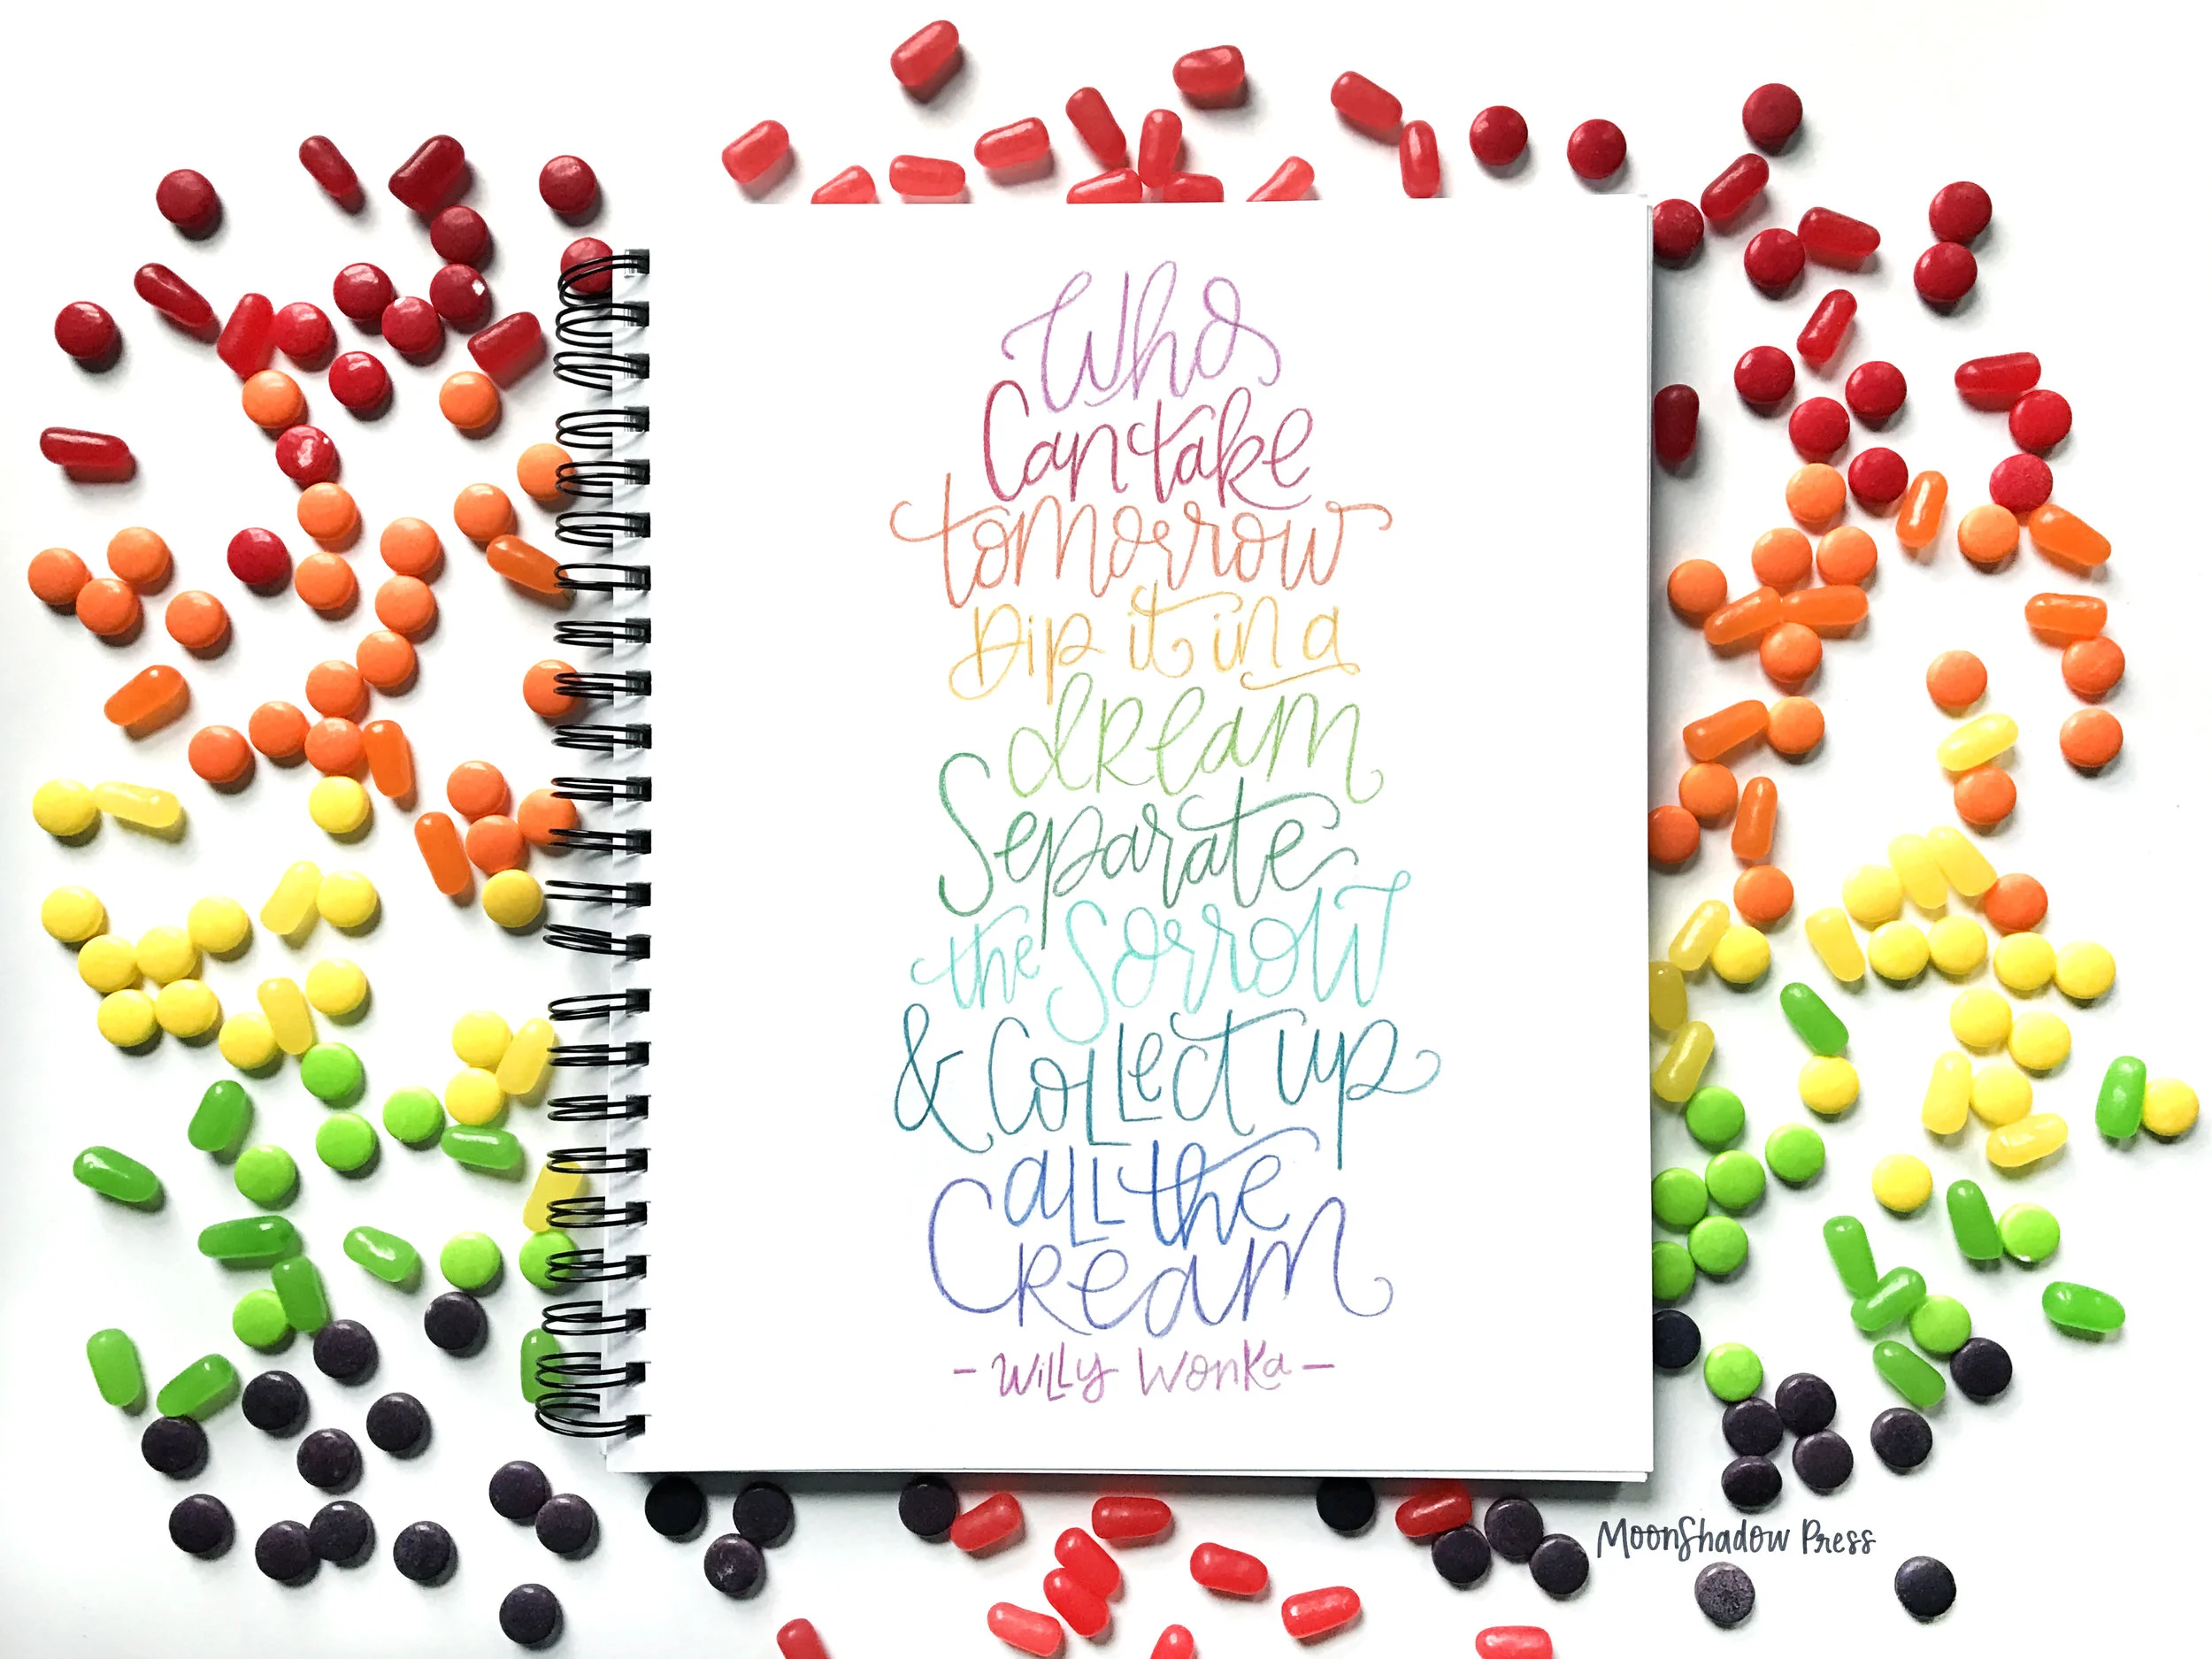 Who
Can take
tomorrow
Dip it in a
dream
Separate
the Sorrow
& Collect up
all the
Cream
- Willy Wonka -
MoonShadow Press